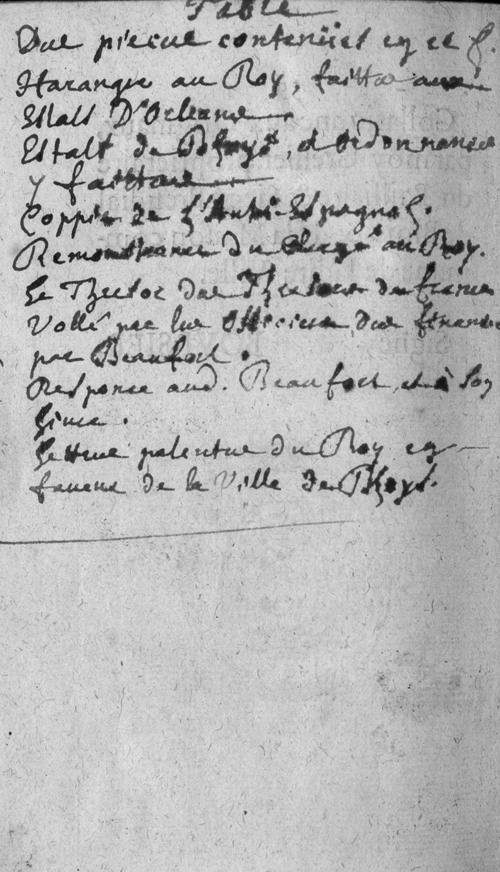 Table
Des pieces contenües en ce L.
Harangue au Roy, faitte aux
Estats D'Orleans
Estats de Bloys, et ordonnances
y faittes
Coppie de l'Anti-Espagnol.
Remonstrance du Clergé au Roy.
Le Thresor des Thresors de france
Vollé par les officiers des finances
par Beaufort.
Response aud. Beaufort, et à son
Livre.
Lettres patentes du Roy en
faveur de la Ville de Bloys.